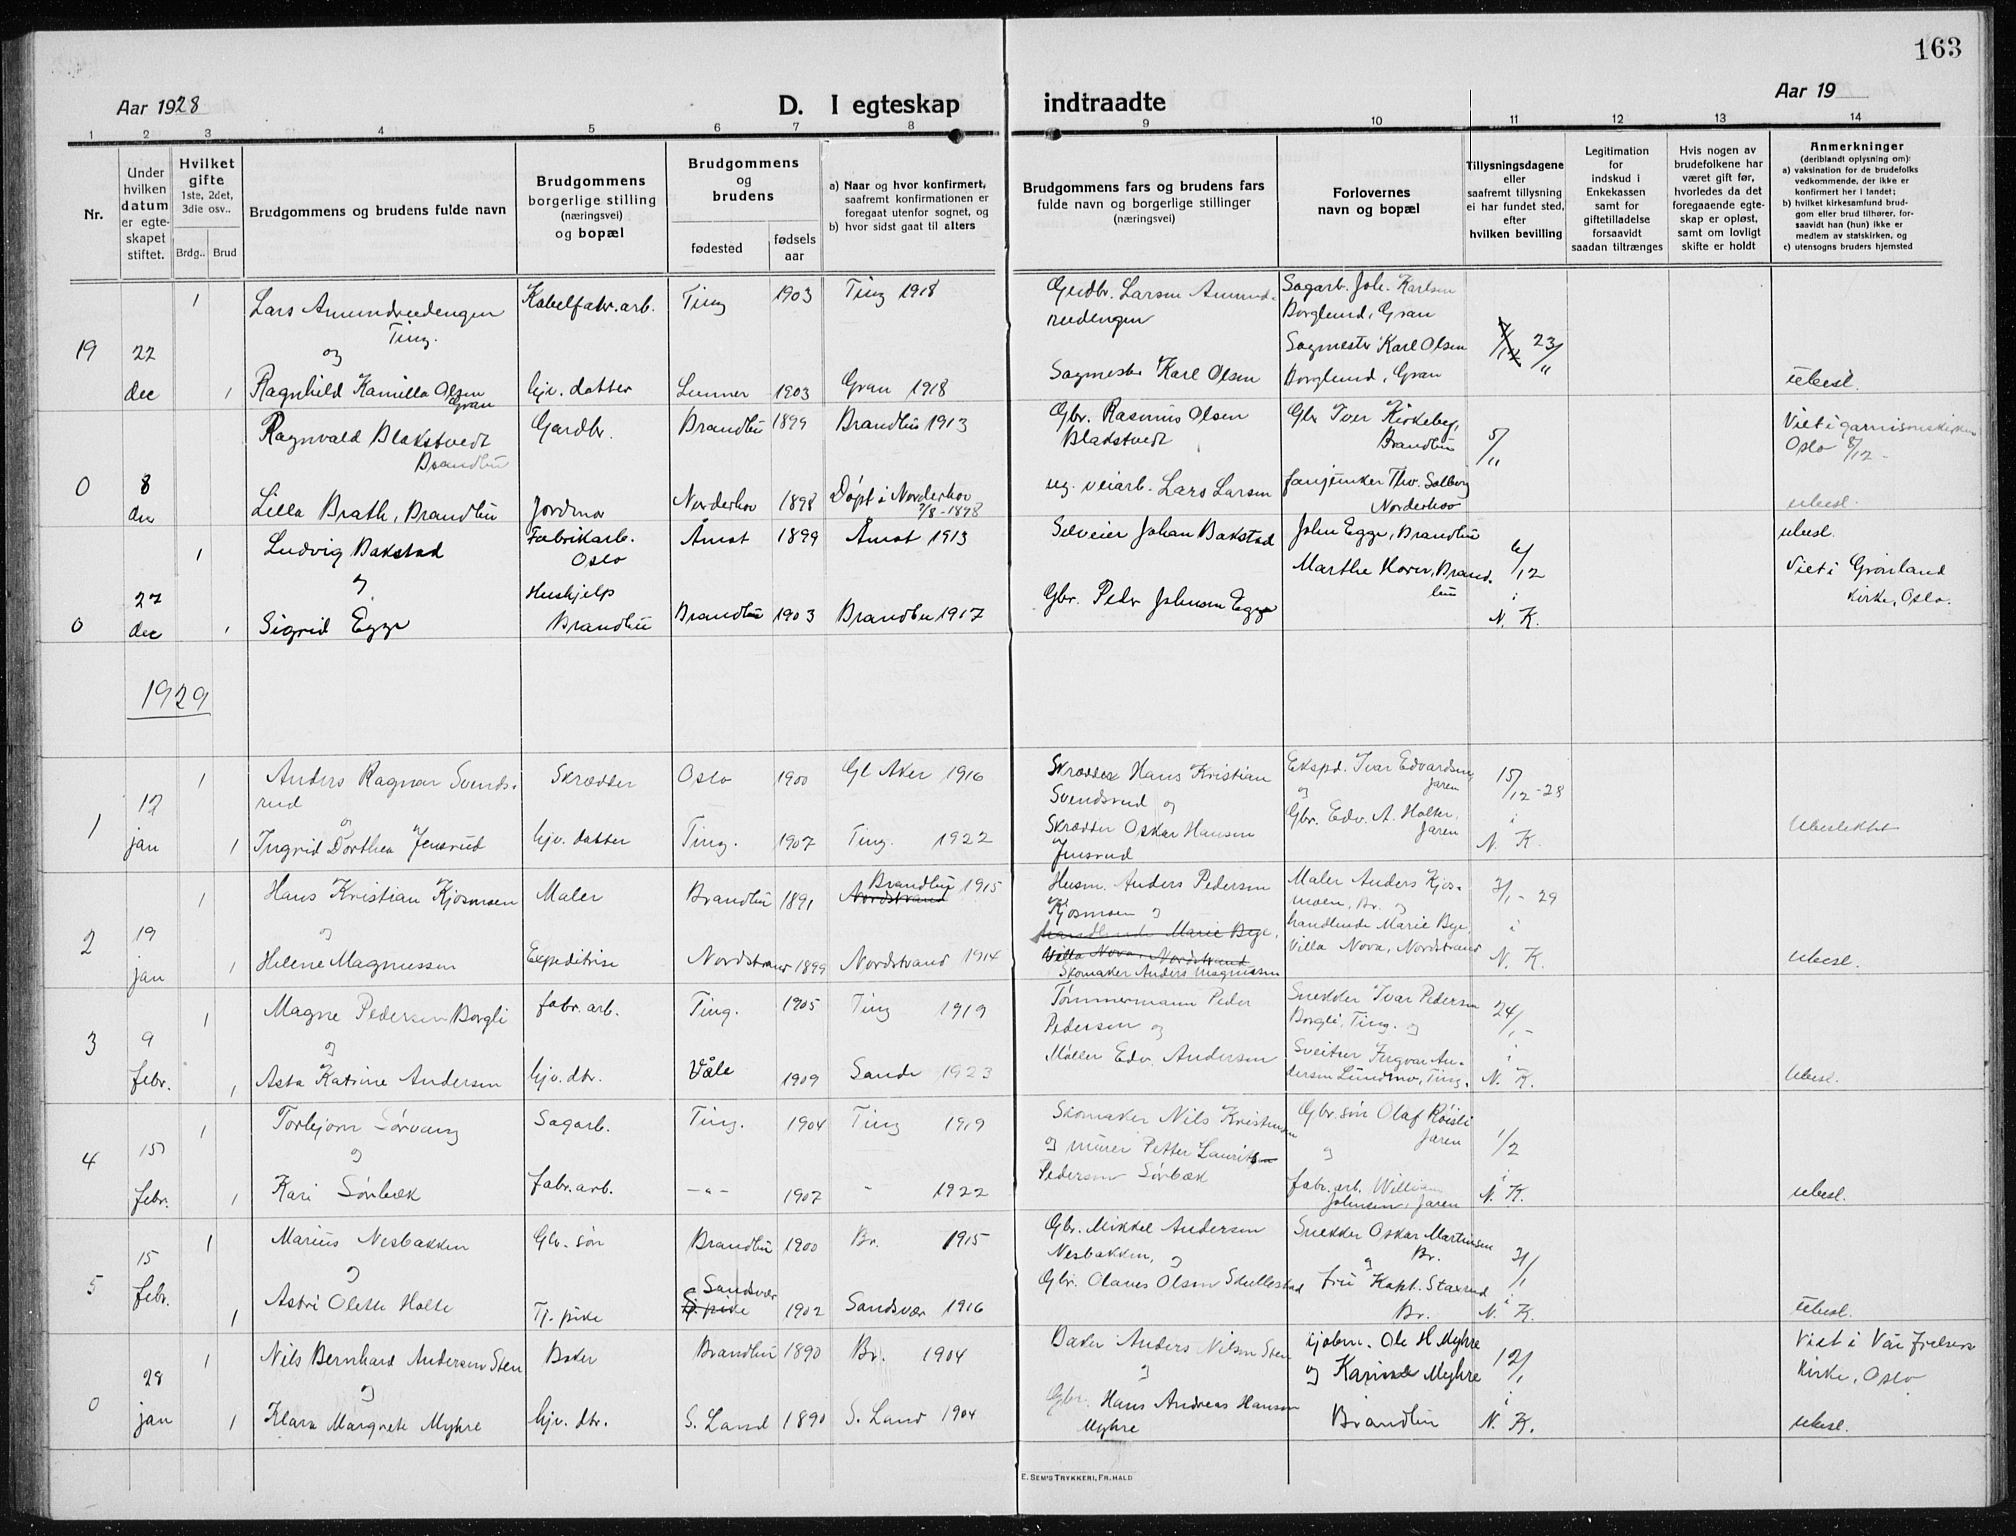 163
Aar 1928
D. I egteskap indtraadte
Aar 19
1 2 3 4 5 6 7 8 9 10 11 12 13 14
Nr.
Under hvilken datum er egteskapet stiftet.
Hvilket gifte
1ste, 2det, 3die osv..
Brdg.. Brud
Brudgommens og brudens fulde navn
Brudgommens borgerlige stilling (næringsvei) og bopæl
Brudgommens og brudens
fødested
fødsels aar
a) Naar og hvor konfirmert, saafremt konfirmationen er foregaat utenfor sognet, og
b) hvor sidst gaat til alters
Brudgommens fars og brudens fars fulde navn og borgerlige stillinger (næringsvei)
Forlovernes navn og bopæl
Tillysningsdagene eller saafremt tillysning ei har fundet sted, efter hvilken bevilling
Legitimation for indskud i Enkekassen samt for giftetilladelse forsaavidt saadan tiltrænges
Hvis nogen av brudefolkene har været gift før, hvorledes da det foregaaende egteskap er opløst, samt om lovligt skifte er holdt
Anmerkninger
(deriblandt oplysning om):
a) vaksination for de brudefolks vedkommende, der ikke er konfirmert her i landet;
b) hvilket kirkesamfund brudgom eller brud tilhører, forsaavidt han (hun) ikke er medlem av statskirken, og
c) utensogns bruders hjemsted
19 22 dec
1 Lars Amundrudengen Ting. Kabelfabr.arb. Ting 1903 Ting 1918
Gudbr. Larsen Amundrudengen
Sagarb. Joh. Karlsen Borglund, Gran
7/12 23/11
og
1 Ragnhild Kamilla Olsen Gran hjv. datter Lunner 1903 Gran 1918
Sagmester Karl Olsen
Sagmester Karl Olsen Borglund, Gran
ubesl.
0 8 des
Ragnvald Blakstvedt Brandbu Gardbr. Brandbu 1899 Brandbu 1913
Gbr. Rasmus Olsen Blakstvedt
Gbr Iver Kirkeby, Brandbu
5/11
Viet i garnisonskirken Oslo 8/12 -
Lilla Brath, Brandbu Jordmor Norderhov 1898 Døpt i Norderhov 7/8 - 1898
ug. veiarb. Lars Larsen
fanejunker Thv. Solberg Norderhov
ubesl.
0 27 dec
1 Ludvig Bakstad Fabrikarb. Oslo Åmot 1899 Åmot 1913
Selveier Johan Bakstad
John Egge, Brandbu
Marthe Horn, Brandbu
6/12 i N. K.
ubesl.
Viet i Grønland Kirke, Oslo.
og
1 Sigrid Egge Hushjelp Brandbu Brandbu 1903 Brandbu 1917
Gbr. Peder Johnsen Egge
1929
1 12 jan
1 Anders Ragnar Svendsrud Skrædder Oslo 1900 Gl Aker 1916
Skrædder Hans Kristian Svendsrud og
Ekspd. Ivar Edvardsen Jaren og
15/12 - 28 i N. K.
og
1 Ingrid Dorthea Jensrud hjv. datter Ting. 1907 Ting. 1922
Skrædder Oskar Hansen Jensrud
Gbr. Edv. A. Holter, Jaren
Ubeslektet
2 19 jan
1 Hans Kristian Kjosmoen Maler Brandbu 1891 Brandbu 1915
Nordstrand
Husm. Anders Pedersen Kjosmoen og
Maler Anders Kjosmoen, Br. og
3/1 - 29 i N. K.
og
handlende Marie Bye, Villa Nova, Nordstrand
1 Helene Magnussen Expeditrise Nordstrand 1899 Nordstrand 1914
Skomaker Anders Magnussen
handlende Marie Bye, Villa Nova, Nordstrand
ubesl.
3 9 febr.
1 Magne Pedersen Borgli fabr.arb. Ting. 1905 Ting 1919
Tømmermann Peder Pedersen og
Snekker Ivar Pedersen Borgli, Ting. og
24/1 - i N. K.
og
1 Asta Katrine Andersen hjv. dtr. Våle 1909 Sande 1923
Møller Edv. Andersen
Sveitser Ingvar Andersen Lundmo, Ting.
ubesl.
4 15 febr.
1 Torbjørn Sørvang Sagarb. Ting. 1904 Ting 1919
Skomaker Nils Kristensen
Gbr.søn Olaf Røisli Jaren
og
1/2 i N. K.
og
1 Kari Sørbæk fabr.arb. -"- 1907 " 1922
og murer Petter Lauritsen Pedersen Sørbæk
fabr.arb. William Johnsen, Jaren
ubesl.
5 15 febr.
1 Marius Nesbakken Gbr. søn Brandbu 1900 Br. 1915
Gbr. Mikkel Andersen Nesbakken, og
Snekker Oskar Martinsen Br. og
3/1 i N. K.
og
1 Astri Olette Holte Tj. pike Sandsvær 1902 Sandsvær 1916
Tj. pike
Gbr. Olaves Olsen Skullestad
Fru Kapt. Staxrud Br.
ubesl.
0 28 jan
1 Nils Bernhard Andersen Sten Baker Brandbu 1890 Br. 1904
Baker Anders Nilsen Sten
og
Kjøbm. Ole H Myhre og Karinde Myhre Brandbu
12/1 i N. K.
Viet i Vår frelsers Kirke, Oslo
og
1 Klara Margrete Myhre hjv. dtr. S. Land 1890 S. Land 1904
Gbr. Hans Andreas Hansen Myhre
ubesl.
E. SEM'S TRYKKERI, FR. HALD